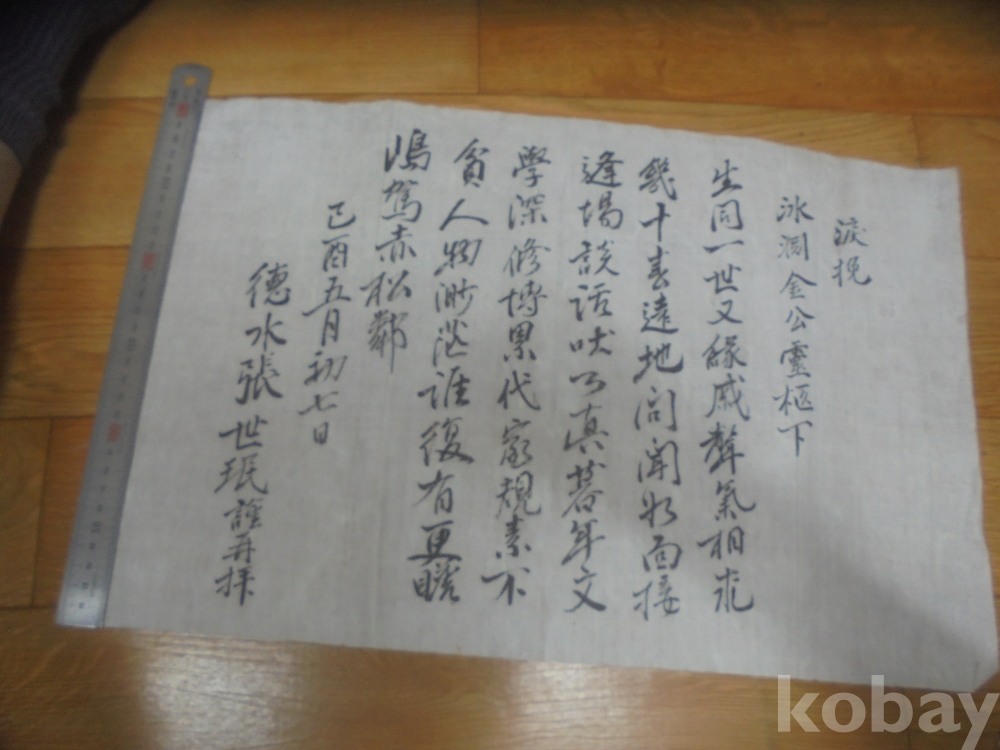 淚挽
冰澗金公靈柩下
生同一世又緣戚聲氣相求
幾十春遠地問聞如面接
逢場談話真暮年文
學深修博累代家規素不
貧人物渺茫誰復有更瞻
駕赤松鄰
己酉五月初七日
德水張世珉謹再拜
kobay